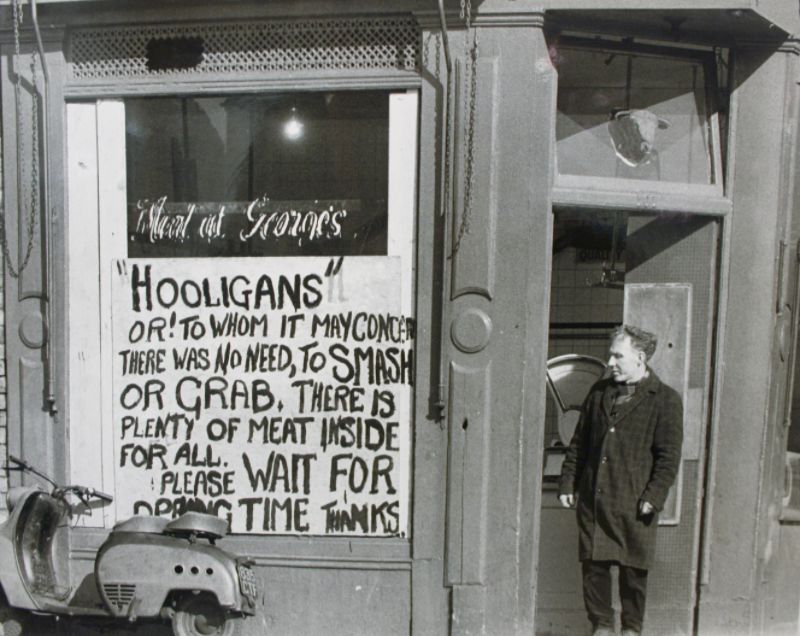 Meat at George's
"HOOLIGANS"
OR! TO WHOM IT MAY CONCER
THERE WAS NO NEED, TO SMASH
OR GRAB. THERE IS
PLENTY OF MEAT INSIDE
FOR ALL.
PLEASE WAIT FOR
OPENING TIME THANKS
QUALITY